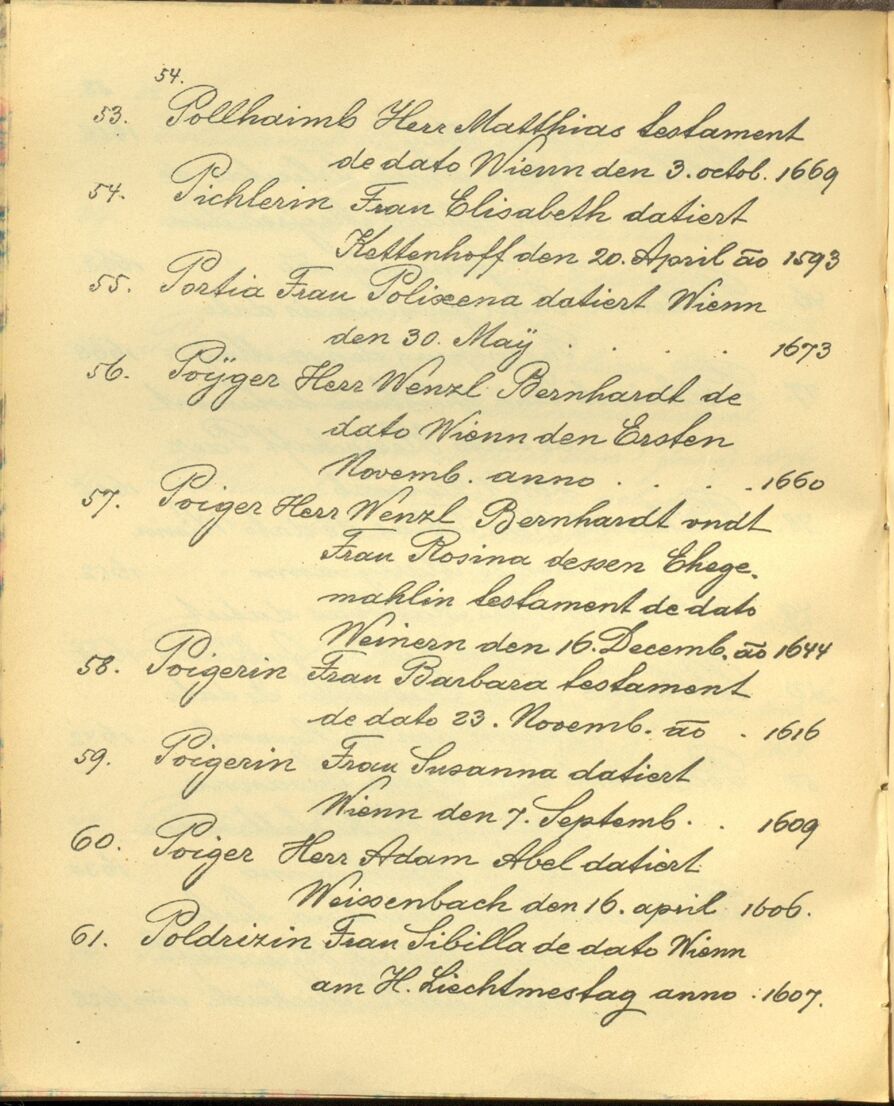 54.
53. Pollhaimb Herr Matthias testament
de dato Wienn den 3. octob. 1669
54. Pichlerin Frau Elisabeth datiert
Kettenhoff den 20. April āo 1593
55. Portia Frau Polixena datiert Wienn
den 30. Maÿ . . . . 1673
56. Poÿger Herr Wenzl Bernhardt de
dato Wienn den Ersten
Novemb. anno . . . . 1660
57. Poiger Herr Wenzl Bernhardt vndt
Frau Rosina dessen Ehege-
mahlin testament de dato
Weinern den 16. Decemb. āo 1644
58. Poigerin Frau Barbara testament
de dato 23. Novemb. āo . 1616
59. Poigerin Frau Susanna datiert
Wienn den 7. Septemb. . . 1609
60. Poiger Herr Adam Abel datiert
Weissenbach den 16. april 1606.
61. Poldrizin Frau Sibilla de dato Wienn
am H. Liechtmestag anno . 1607.